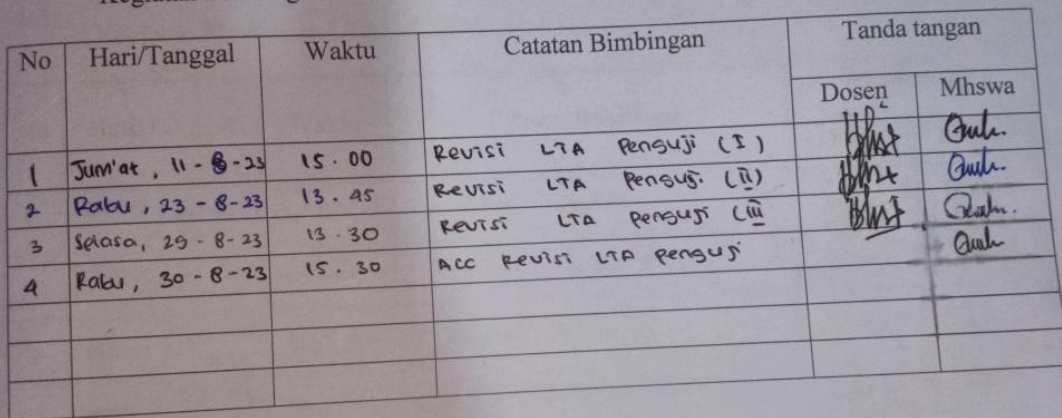 No Hari/Tanggal Waktu Catatan Bimbingan Tanda tangan
Dosen Mhswa
1 Jum'at, 11-8-23 15.00 Revisi LTA Penguji (I)
2 Rabu, 23-8-23 13.45 Revisi LTA Penguji (II)
3 Selasa, 29-8-23 13.30 Revisi LTA Penguji (III)
4 Rabu, 30-8-23 15.30 ACC Revisi LTA Penguji